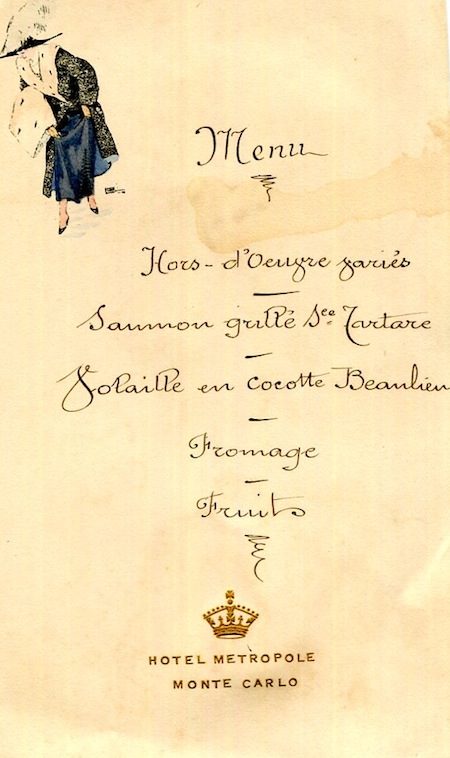 Menu
Hors-d'Oeuvre variés
Saumon grillé Sce Tartare
Volaille en Cocotte Beaulieu
Fromage
Fruits
HOTEL METROPOLE
MONTE CARLO